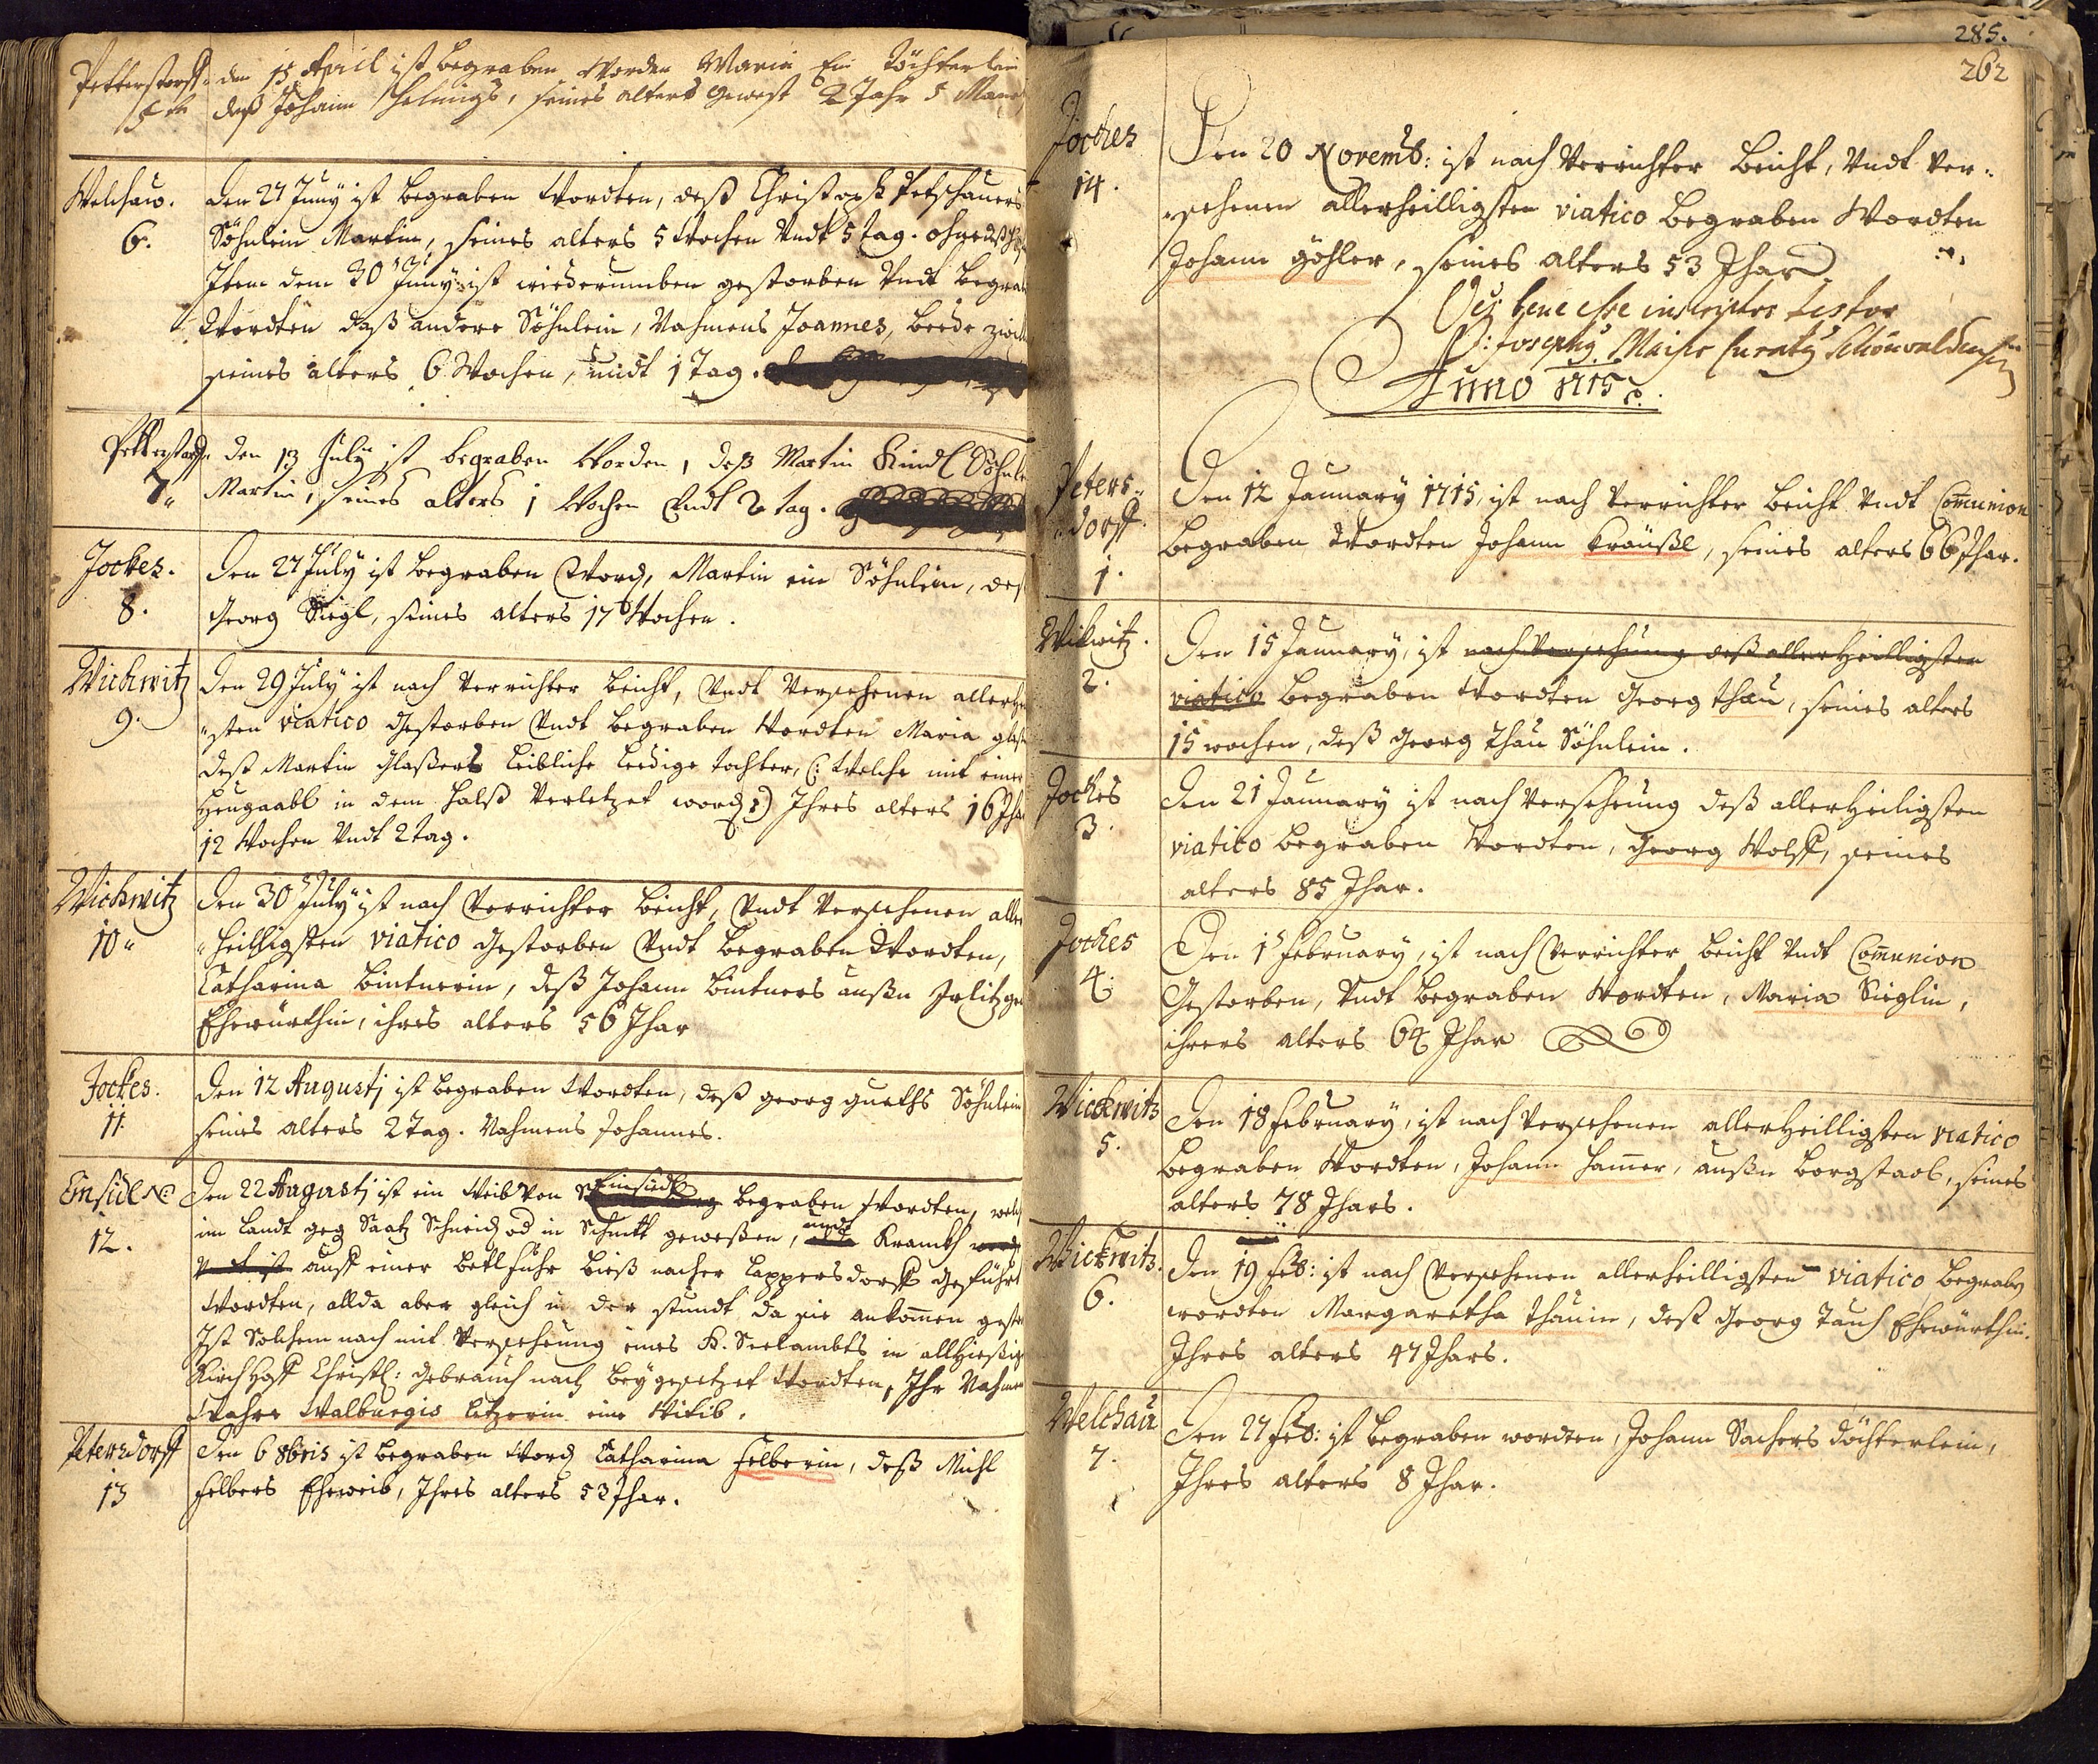 Petterstorff den 15 April ist begraben worden Maria Ein Töchterlein
5te deß Johann Helmigs, seines alters gewest 2 Jahr 5 Mana
Welchaw. Den 27 Juny ist begraben Wordten, deß Christoph Petschauers
6. Söhnlein Martin, seines alters 5 Wochen Vndt 5 tag.
Item dem 30 Juny ist wiederumben gestorben Vndt begra
Wordten daß andere Söhnlein, Nahmens Joannes, beede
seines alters 6 Wochen, undt 1 Tag.
Petterstorff den 13 July ist begraben Worden, deß Martin Kindl Söhnle
7 Martin, seines alters 1 Wochen Vndt 2 tag.
Jockes. Den 27 July ist begraben Word, Martin ein Söhnlein, deß
8. Georg Siegl, seines alters 17 Wochen.
Wickwitz Den 29 July ist nach Verrichter beicht, Vndt Versehenen allerhei
9. sten viatico Gestorben Vndt begraben Wordten Maria glaß
deß Martin Glaßers leibliche leedige tochter, (: Welche mit einer
Heugaabl in dem Halß Verletzet word :) Ihres alters 16 Jha
12 Wochen Vndt 2 tag.
Wickwitz Den 30 July ist nach Verrichter beicht, Vndt Versehenen aller
10 heilligsten viatico Gestorben Vndt begraben Wordten,
Catharina Bintnerin, deß Johann Bintners außn
Ehewürthin, ihres alters 56 Jhar
Jockes. Den 12 Augustj ist begraben Wordten, deß georg gueths Söhnlein
11. seines alters 2 Tag. Nahmens Johannes.
Einsidl Den 22 Augustj ist ein Weib Von Einsiedl begraben Wordten, welch
12. im landt geg Saatz Schneid od in Schnitt geweßen, undt Kranckh
auff einer betlfuhr bieß nacher Lappersdorff Geführt
Wordten, allda aber gleich in der stundt da sie ankomen gest
Ist Solchem nach mit Versehung eines H. Seelambts in allhießig
Kirchhoff Christl: Gebrauch nach beygesetzet Wordten, Ihr Nahmen
Wahre Walburgis Litzerin eine Witib.
Petersdorff Den 6 8bris ist begraben Word Catharina Felberin, deß Michl
13 Felbers Eheweib, Ihres alters 52 Jhar.
285.
262
Jockes Den 20 Novemb: ist nach Verrichter Beicht, Vndt Ver-
14. sehenen allerheilligsten viatico begraben Wordten
Johann Göhler, seines alters 53 Jhar
bene esse inscriptos testor
P: Josephus Maiser Curatus Schönwaldensis
Anno 1715.
Peters- Den 12 January 1715, ist nach Verrichter beicht Vndt Comunion
dorff. begraben Wordten Johann Kräußl, seines alters 66 Jhar.
1.
Wikwitz. Den 15 January, ist nach Versehung deß allerheilligsten
2. viatico begraben Wordten Georg Thau, seines alters
15 wochen, deß Georg Thau Söhnlein.
Jockes Den 21 January ist nach Versehung deß allerheiligsten
3. viatico begraben Wordten, Georg Wolff, seines
alters 85 Jhar.
Jockes Den 1 February, ist nach Verrichter beicht Vndt Comunion
4. Gestorben, Vndt begraben Wordten, Maria Sieglin,
ihrers alters 64 Jhar
Wickwitz Den 18 February, ist nach Versehenen allerheilligsten viatico
5. begraben Wordten, Johann Hamer, außn borgstadl, seines
alters 78 Jhars.
Wickwitz. Den 19 Feb: ist nach Versehenen allerheilligsten viatico begrab
6. wordten Margaretha Thauin, deß Georg Tauh Ehewürthin.
Ihres alters 47 Jhars.
Welchau Den 27 Feb: ist begraben wordten, Johann Sachers döchterlein,
7. Ihres alters 8 Jhar.